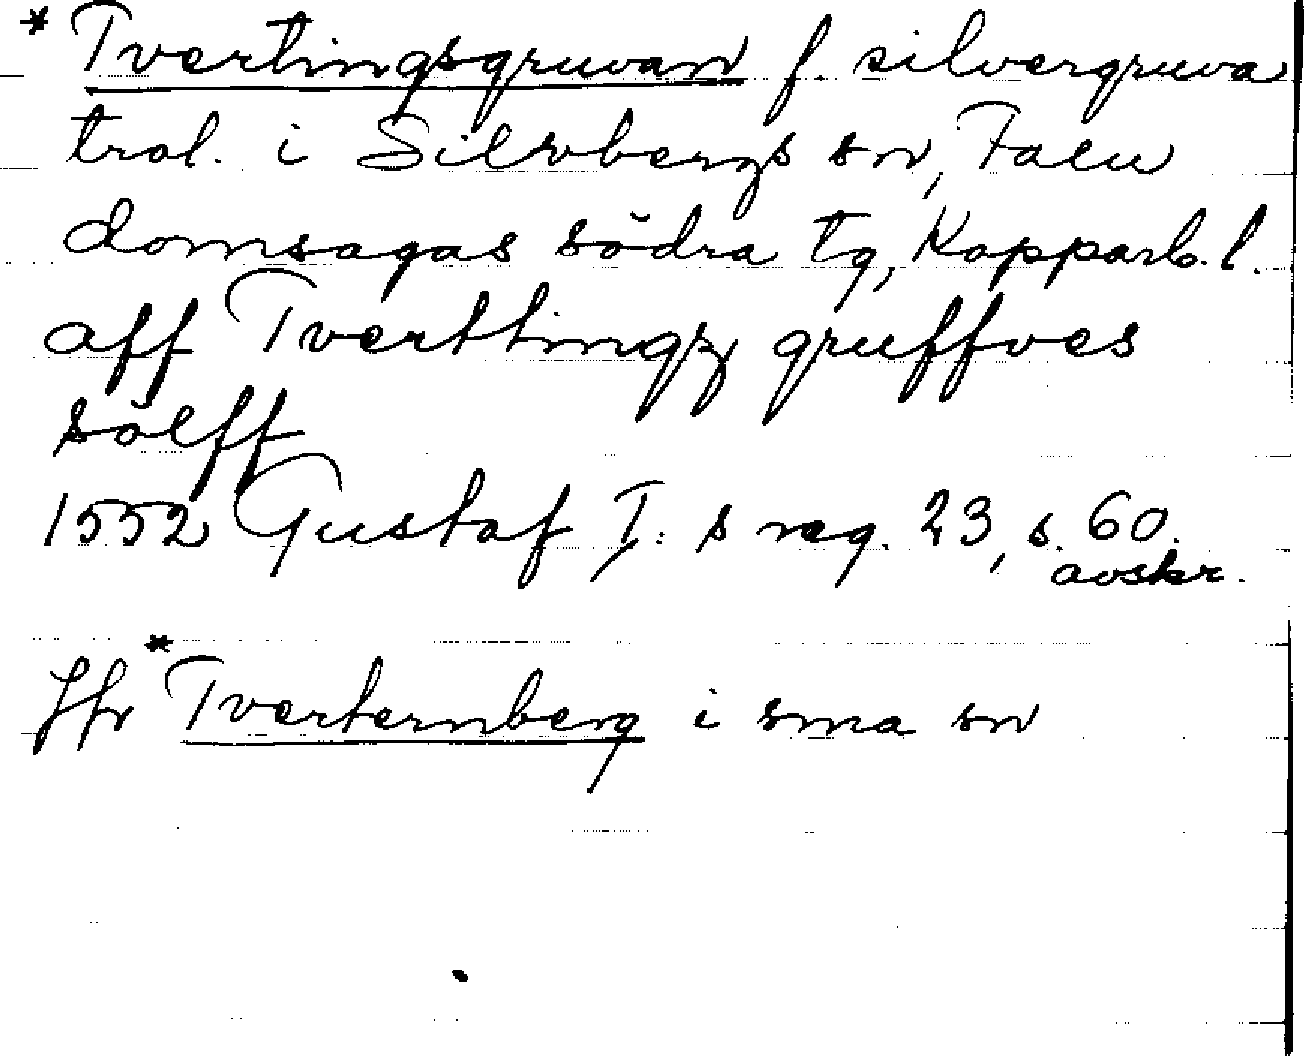 * Tvertingsgruvan f. silvergruva
trol. i Silvbergs sn, Falu
domsagas södra tg, Kopparb. l.
aff Tverttingz gruffves
sölff
1552 Gustaf I: s reg. 23, s. 60.
avskr.
Jfr * Tverternberg i sma sn